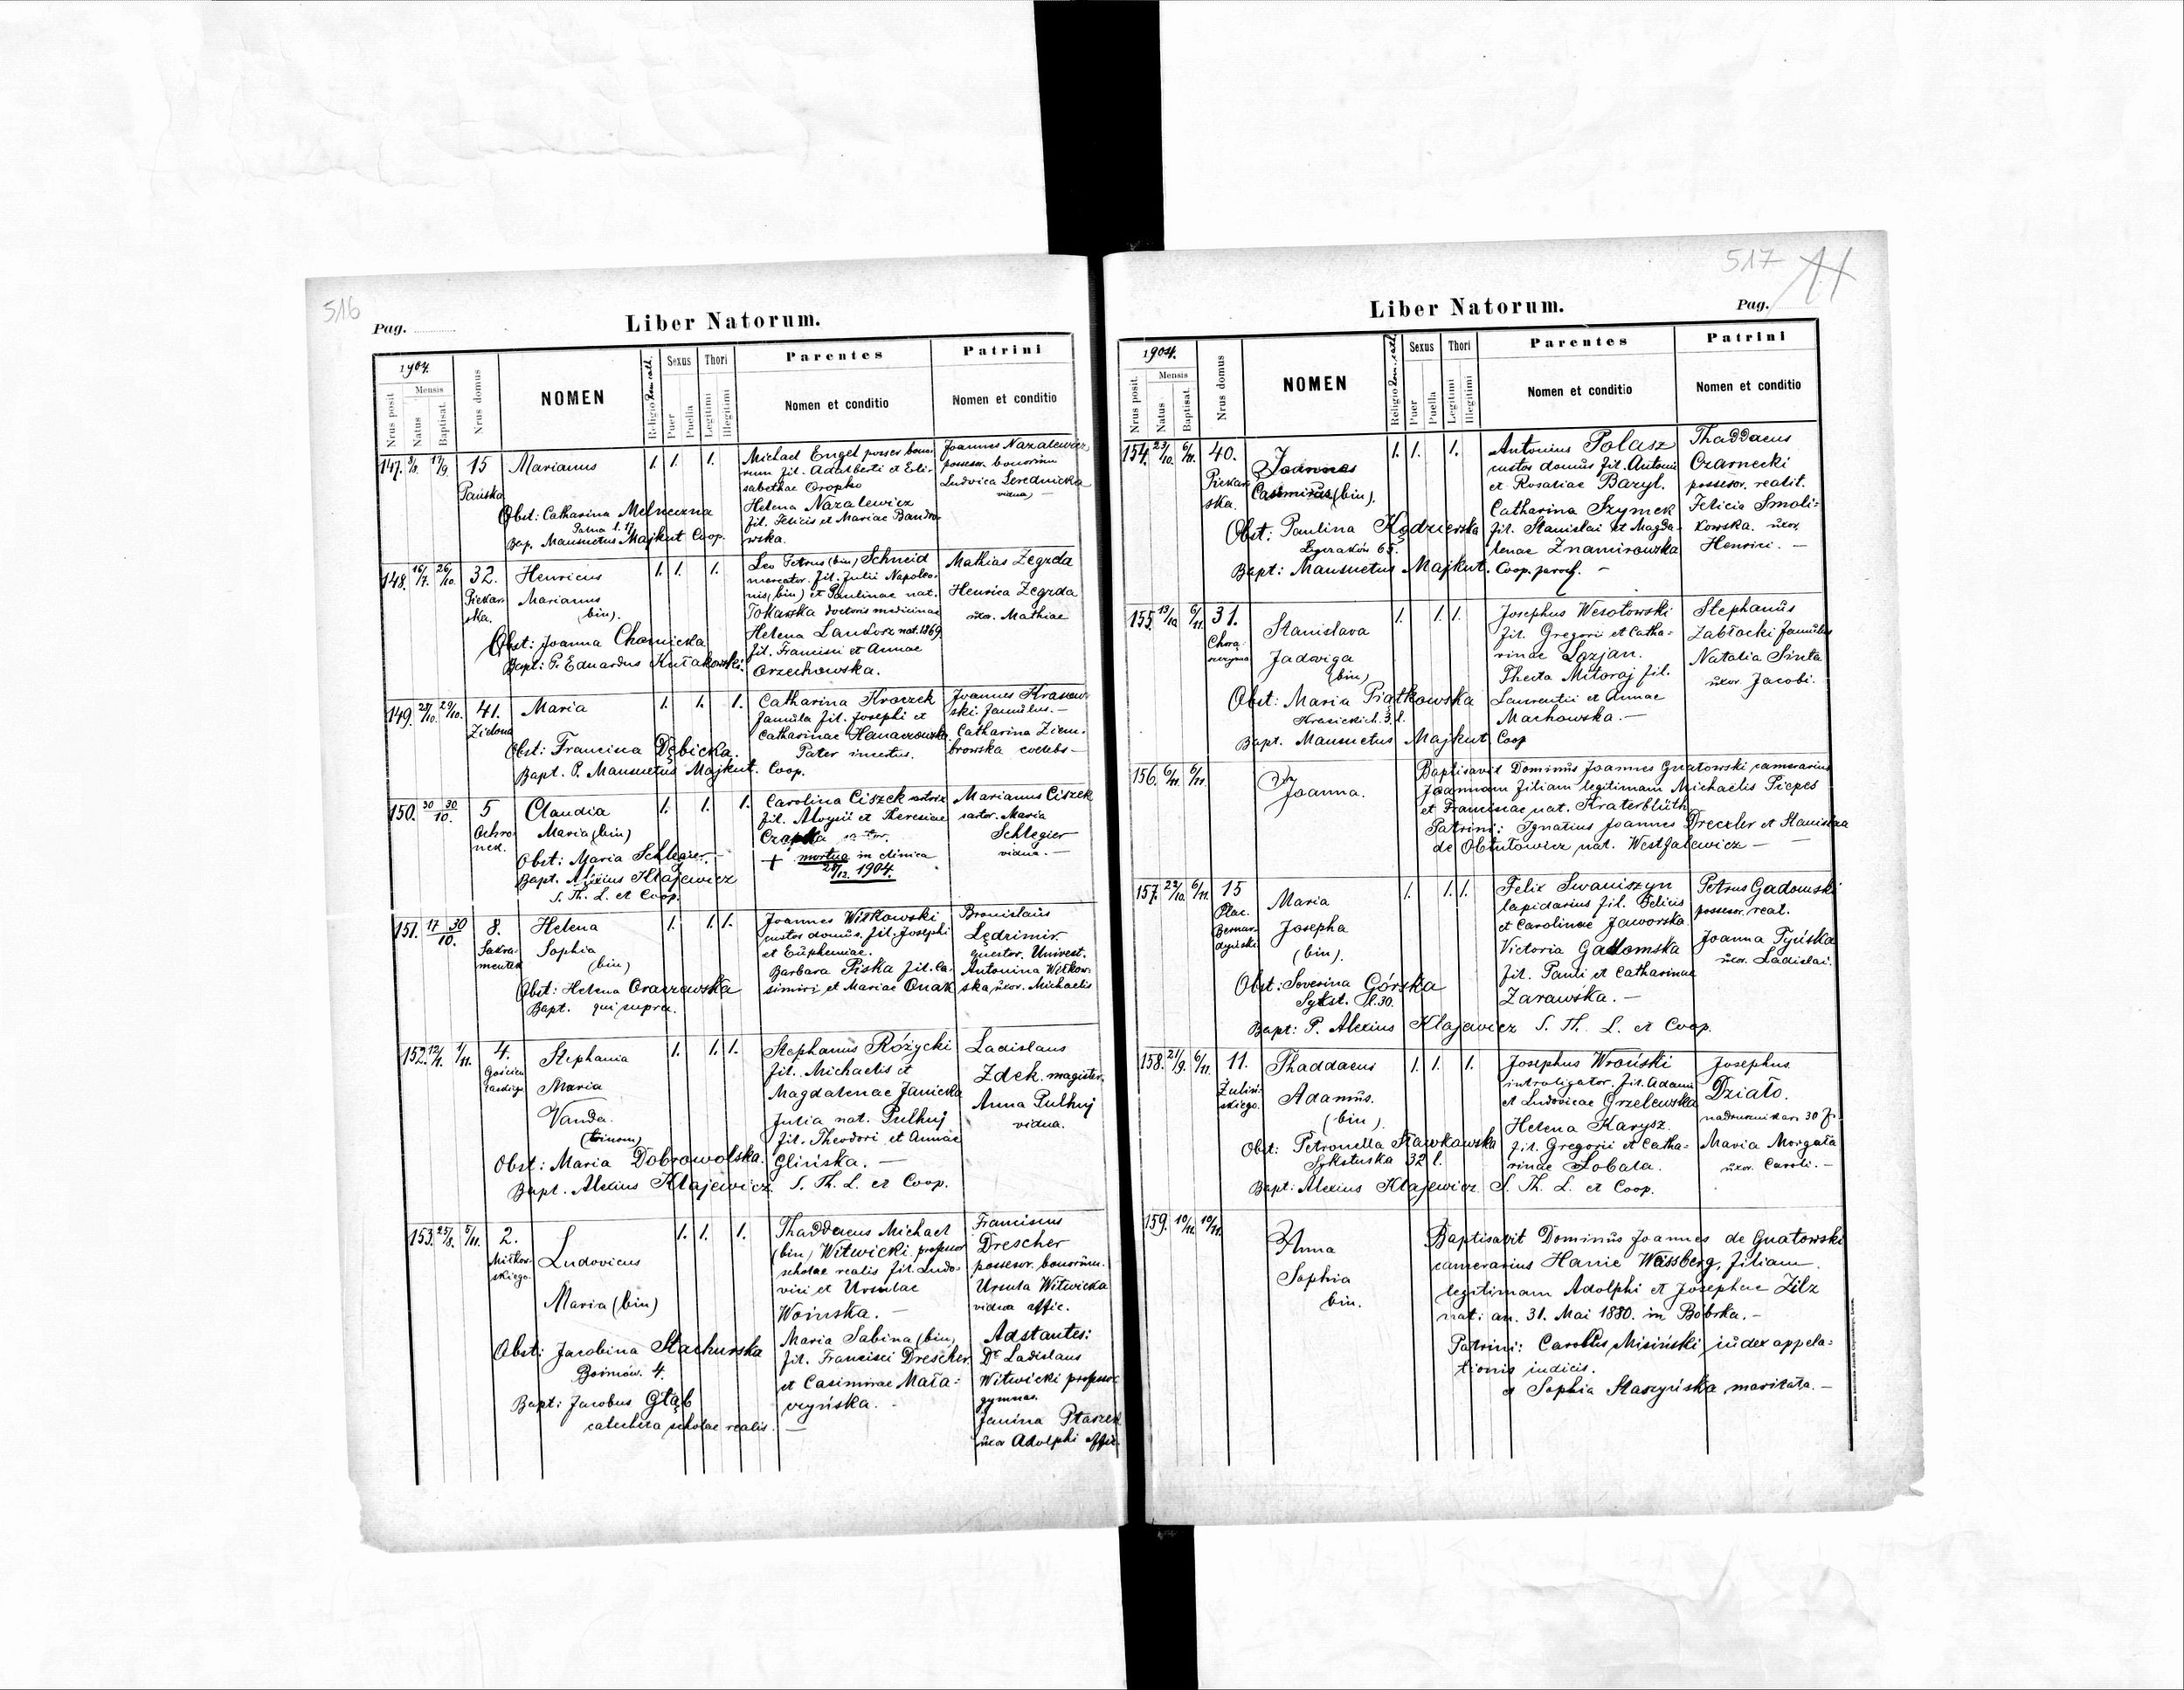 516
Pag.
Liber Natorum.
1904.
Nrus posit.
Mensis
Natus
Baptisat.
Nrus domus
NOMEN
Religio Rom. cath.
Sexus
Puer
Puella
Thori
Legitimi
Illegitimi
Parentes
Nomen et conditio
Patrini
Nomen et conditio
147. 17/9 15 Marianus 1. 1. 1.
Pańska
Obst: Catharina Melniczna
Bap. Mansuetus Majkut Coop.
Michael Engel posses. bono-
rum fil. Adalberti et Eli-
sabethae Oropko
Helena Nazalewicz
fil. Felicis et Mariae Bandro-
wska.
Joannes Nazalewicz
possesor. bonorum
Ludvica Serednicka
vidua) —
148. 16/7. 26/10. 32. Henricus 1. 1. 1.
Piekar-
ska.
Marianus
(bin).
Obst: Joanna Charnicka
Bapt: P. Eduardus Kułakowski.
Leo Petrus (bin) Schneid
mercator. fil. Julii Napoleo-
nis (bin) et Paulinae nat.
Tokarska doctoris medicinae
Helena Landosz nat. 1869.
fil. Francisci et Annae
Orzechowska.
Mathias Zegzda
Henrica Zegzda
uxor. Mathiae
149. 29/10. 41. Maria 1. 1. 1.
Zielona
Obst: Francisca Dębicka.
Bapt. P. Mansuetus Majkut. Coop.
Catharina Kroczek
famula fil. Josephi et
Catharinae
Pater incertus.
Joannes Krasow-
ski famulus. —
Catharina Ziem-
browska coelebs —
150. 30 30/10. 5 Claudia 1. 1. 1.
Ochro-
nek.
Maria (bin)
Obst: Maria Schlegier. —
Bapt. Alexius Kłajewicz
S. Th. L. et Coop.
Carolina Ciszek sartrix
fil. Aloysii et Theresiae
Czapka
+ mortua in clinica
1904.
Marianus Ciszek
sartor. Maria
Schlegier
vidua. —
151. 17 30/10. 8. Helena 1. 1. 1.
Sakra-
mentek
Sophia
(bin)
Obst: Helena Oraczewska
Bapt. qui supra.
Joannes Witkowski
custos domûs. fil. Josephi
et Euphemiae.
Barbara Piska fil. Ca-
simiri et Mariae Onak
Bronislaus
Lędzimir.
questor. Univest.
Antonina Witkow-
ska, uxor. Michaelis
152. 1/11. 4. Stephania 1. 1. 1.
Maria
Vanda.
(trinom)
Obst: Maria Dobrowolska.
Bapt. Alexius Kłajewicz. S. Th. L. et Coop.
Stephanus Różycki
fil. Michaelis et
Magdalenae Janicka
Julia nat. Pulhuj
fil. Theodori et Annae
Glińska. —
Ladislaus
Zdek. magister.
Anna Pulhuj
vidua.
153. 25/8. 5/11. 2. Ludovicus 1. 1. 1.
Miłkow-
skiego.
Maria (bin)
Obst: Jacobina Stachurska
Boimów. 4.
Bapt: Jacobus Głąb
catecheta scholae realis.
Thaddaeus Michael
(bin) Witwicki professor
scholae realis fil. Ludo-
vici et Ursulae
Woińska. —
Maria Sabina (bin)
fil. Francisci Drescher
et Casimirae Mała-
czyńska. —
Franciscus
Drescher
possesor. bonorum.
Ursula Witwicka
vidua offic.
Adstantes:
Dr Ladislaus
Witwicki professor
gymnas.
Janina Ptaszek
uxor Adolphi offic.
517
Liber Natorum.
Pag.
1904.
Nrus posit.
Mensis
Natus
Baptisat.
Nrus domus
NOMEN
Religio Rom. cath.
Sexus
Puer
Puella
Thori
Legitimi
Illegitimi
Parentes
Nomen et conditio
Patrini
Nomen et conditio
154. 23/10. 6/11. 40. Joannes 1. 1. 1.
Piekar-
ska.
Casimirus (bin).
Obst: Paulina Kędzierska
Łyczaków 65.
Bapt: Mansuetus Majkut. Coop. paroch. —
Antonius Polasz
custos domûs fil. Antoni
et Rosaliae Bazyl.
Catharina Szymek
fil. Stanislai et Magda-
lenae Znamirowska
Thaddaeus
Czarnecki
possesor. realit.
Felicia Smoli-
kowska. uxor.
Henrici. —
155. 13/10 6/11. 31. Stanislava 1. 1. 1.
Chorą-
szczyzna
Jadwiga
(bin)
Obst: Maria Piątkowska
Krasickich. 3. l.
Bapt. Mansuetus Majkut Coop
Josephus Wesołowski
fil. Gregorii et Catha-
rinae Łozjan.
Thecla Mitoraj fil.
Laurentii et Annae
Machowska. —
Stephanus
Zabłocki famulus
Natalia Sinta
uxor. Jacobi.
156. 6/11. 6/11. Joanna.
Baptisavit Dominus Joannes Gnatowski camerarius
Joannam filiam legitimam Michaelis Piepes
et Franciscae nat. Kraterblüth
Patrini: Ignatius Joannes Drexler et Stanislaa
de Obtułowicz nat. Westfalewicz —
157. 22/10. 6/11. 15 Maria 1. 1. 1.
Plac.
Bernar-
dyński
Josepha
(bin).
Obst: Severina Górska
Sykst. l. 30.
Bapt: P. Alexius Kłajewicz S. Th. L. et Coop.
Felix Iwaniszyn
lapidarius fil. Felicis
et Carolinae Jaworska
Victoria Gadomska
fil. Pauli et Catharinae
Zarawska. —
Petrus Gadomski
possesor, reat.
Joanna Tyńska
uxor. Ladislai.
158. 21/9. 6/11. 11. Thaddaeus 1. 1. 1.
Żuliń-
skiego.
Adamus.
(bin).
Obst: Petronella Sławkowska
Sykstuska 32 l.
Bapt: Alexius Kłajewicz. S. Th. L. et Coop.
Josephus Wroński
introligator. fil. Adami
et Ludovicae Grzelewska
Helena Karysz.
fil. Gregorii et Catha-
rinae Łobala.
Josephus
Działo.
Maria Morgała
uxor. Caroli. —
159. 10/11. 10/11. Anna
Sophia
bin.
Baptisavit Dominus Joannes de Gnatowski
camerarius Hanie Weissberg, filiam
legitimam Adolphi et Josephae Zilz
nat: an. 31. Mai 1880. in Bóbrka. —
Patrini: Carolus Misiński iudex appela-
tionis iudicis.
et Sophia Staszyńska maritata. —